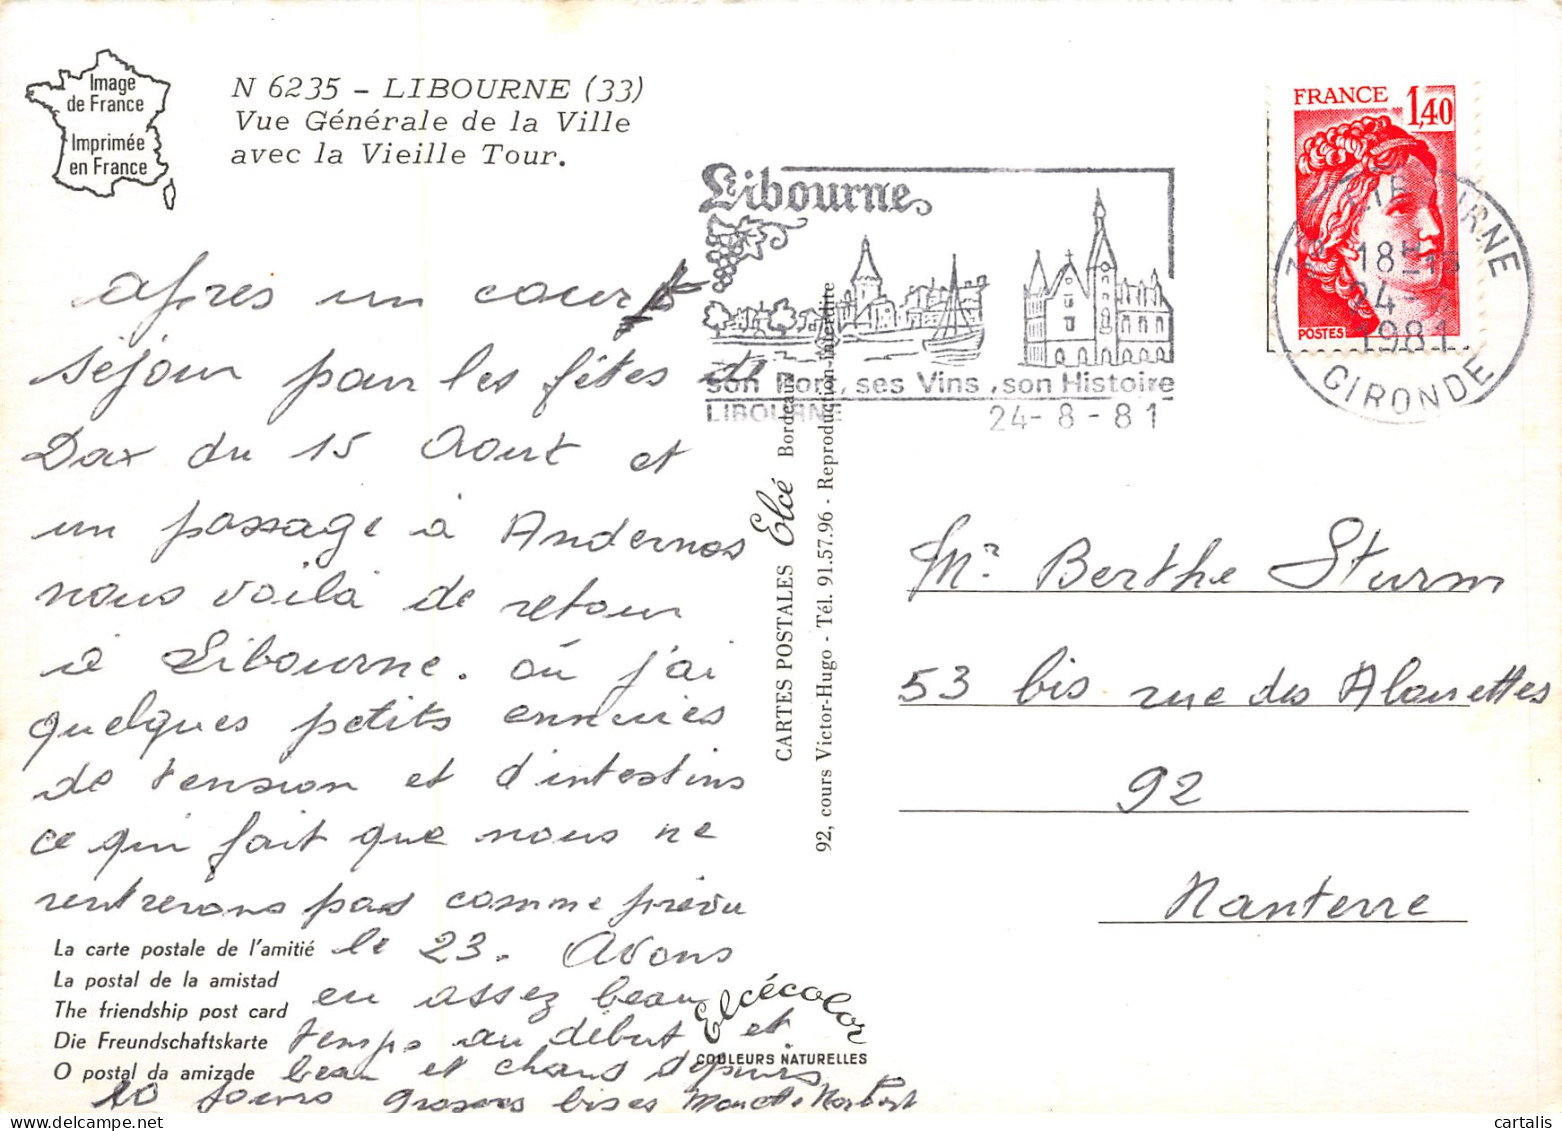 Image
de France
Imprimée
en France
N 6235 - LIBOURNE (33)
Vue Générale de la Ville
avec la Vieille Tour.
après un court
séjour pour les fêtes de
Dax du 15 Aout et
un passage à Andernos
nous voilà de retour
à Libourne. où j'ai
quelques petits ennuies
de tension et d'intestins
ce qui fait que nous ne
rentrerons pas comme prévu
le 23. Avons
eu assez beau
temps au début et
beau et chaud depuis
10 jours grosses bises Norbert
La carte postale de l'amitié
La postal de la amistad
The friendship post card
Die Freundschaftskarte
O postal da amizade
CARTES POSTALES Elcé Bordeaux
92, cours Victor-Hugo - Tél. 91.57.96 - Reproduction interdite
Elcécolor
COULEURS NATURELLES
Libourne
son Port, ses Vins, son Histoire
LIBOURNE 24-8-81
FRANCE 1,40
POSTES
LIBOURNE
18H
24-8
1981
GIRONDE
Mr Berthe Sturm
53 bis rue des Alouettes
92
Nanterre
cartalis